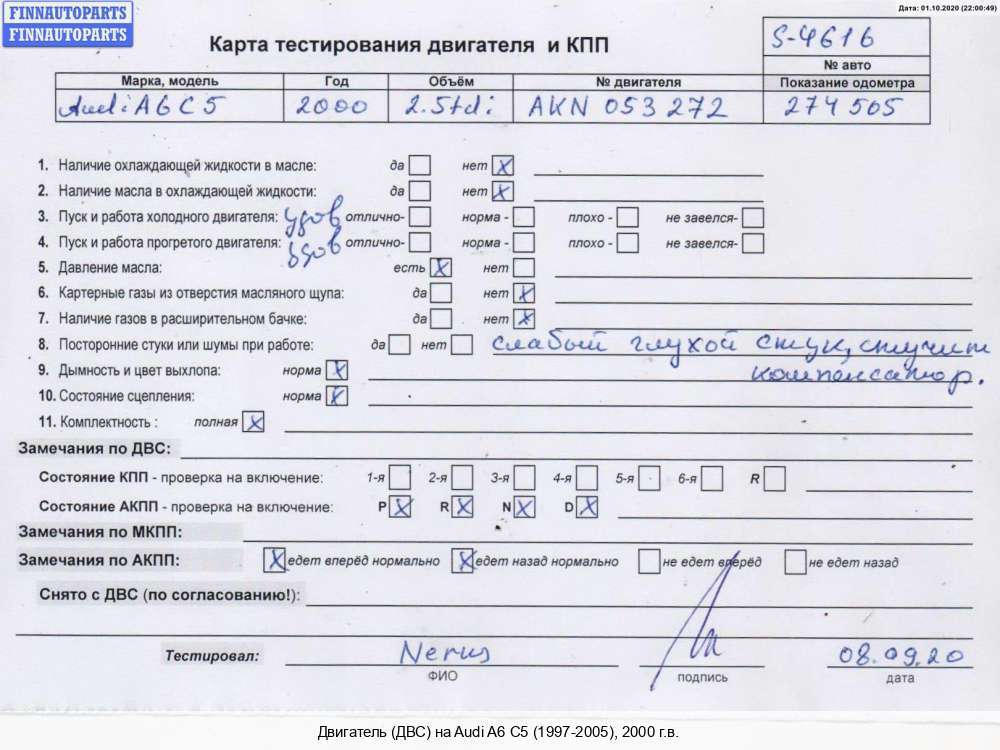 FINNAUTOPARTS
FINNAUTOPARTS
Дата: 01.10.2020 (22:00:49)
Карта тестирования двигателя и КПП
S-4616
№ авто
Марка, модель Год Объём № двигателя Показание одометра
Audi A6 C5 2000 2.5tdi AKN 053 272 274 505
1. Наличие охлаждающей жидкости в масле: да нет X
2. Наличие масла в охлаждающей жидкости: да нет X
3. Пуск и работа холодного двигателя: удов отлично- норма - плохо - не завелся-
4. Пуск и работа прогретого двигателя: удов отлично- норма - плохо - не завелся-
5. Давление масла: есть X нет
6. Картерные газы из отверстия масляного щупа: да нет X
7. Наличие газов в расширительном бачке: да нет X
8. Посторонние стуки или шумы при работе: да нет слабый глухой стук, стучит
компенсатор.
9. Дымность и цвет выхлопа: норма X
10. Состояние сцепления: норма X
11. Комплектность : полная X
Замечания по ДВС:
Состояние КПП - проверка на включение: 1-я 2-я 3-я 4-я 5-я 6-я R
Состояние АКПП - проверка на включение: P X R X N X D X
Замечания по МКПП:
Замечания по АКПП: X едет вперёд нормально X едет назад нормально не едет вперёд не едет назад
Снято с ДВС (по согласованию!):
Тестировал: Nerus 08.09.20
ФИО подпись дата
Двигатель (ДВС) на Audi A6 C5 (1997-2005), 2000 г.в.